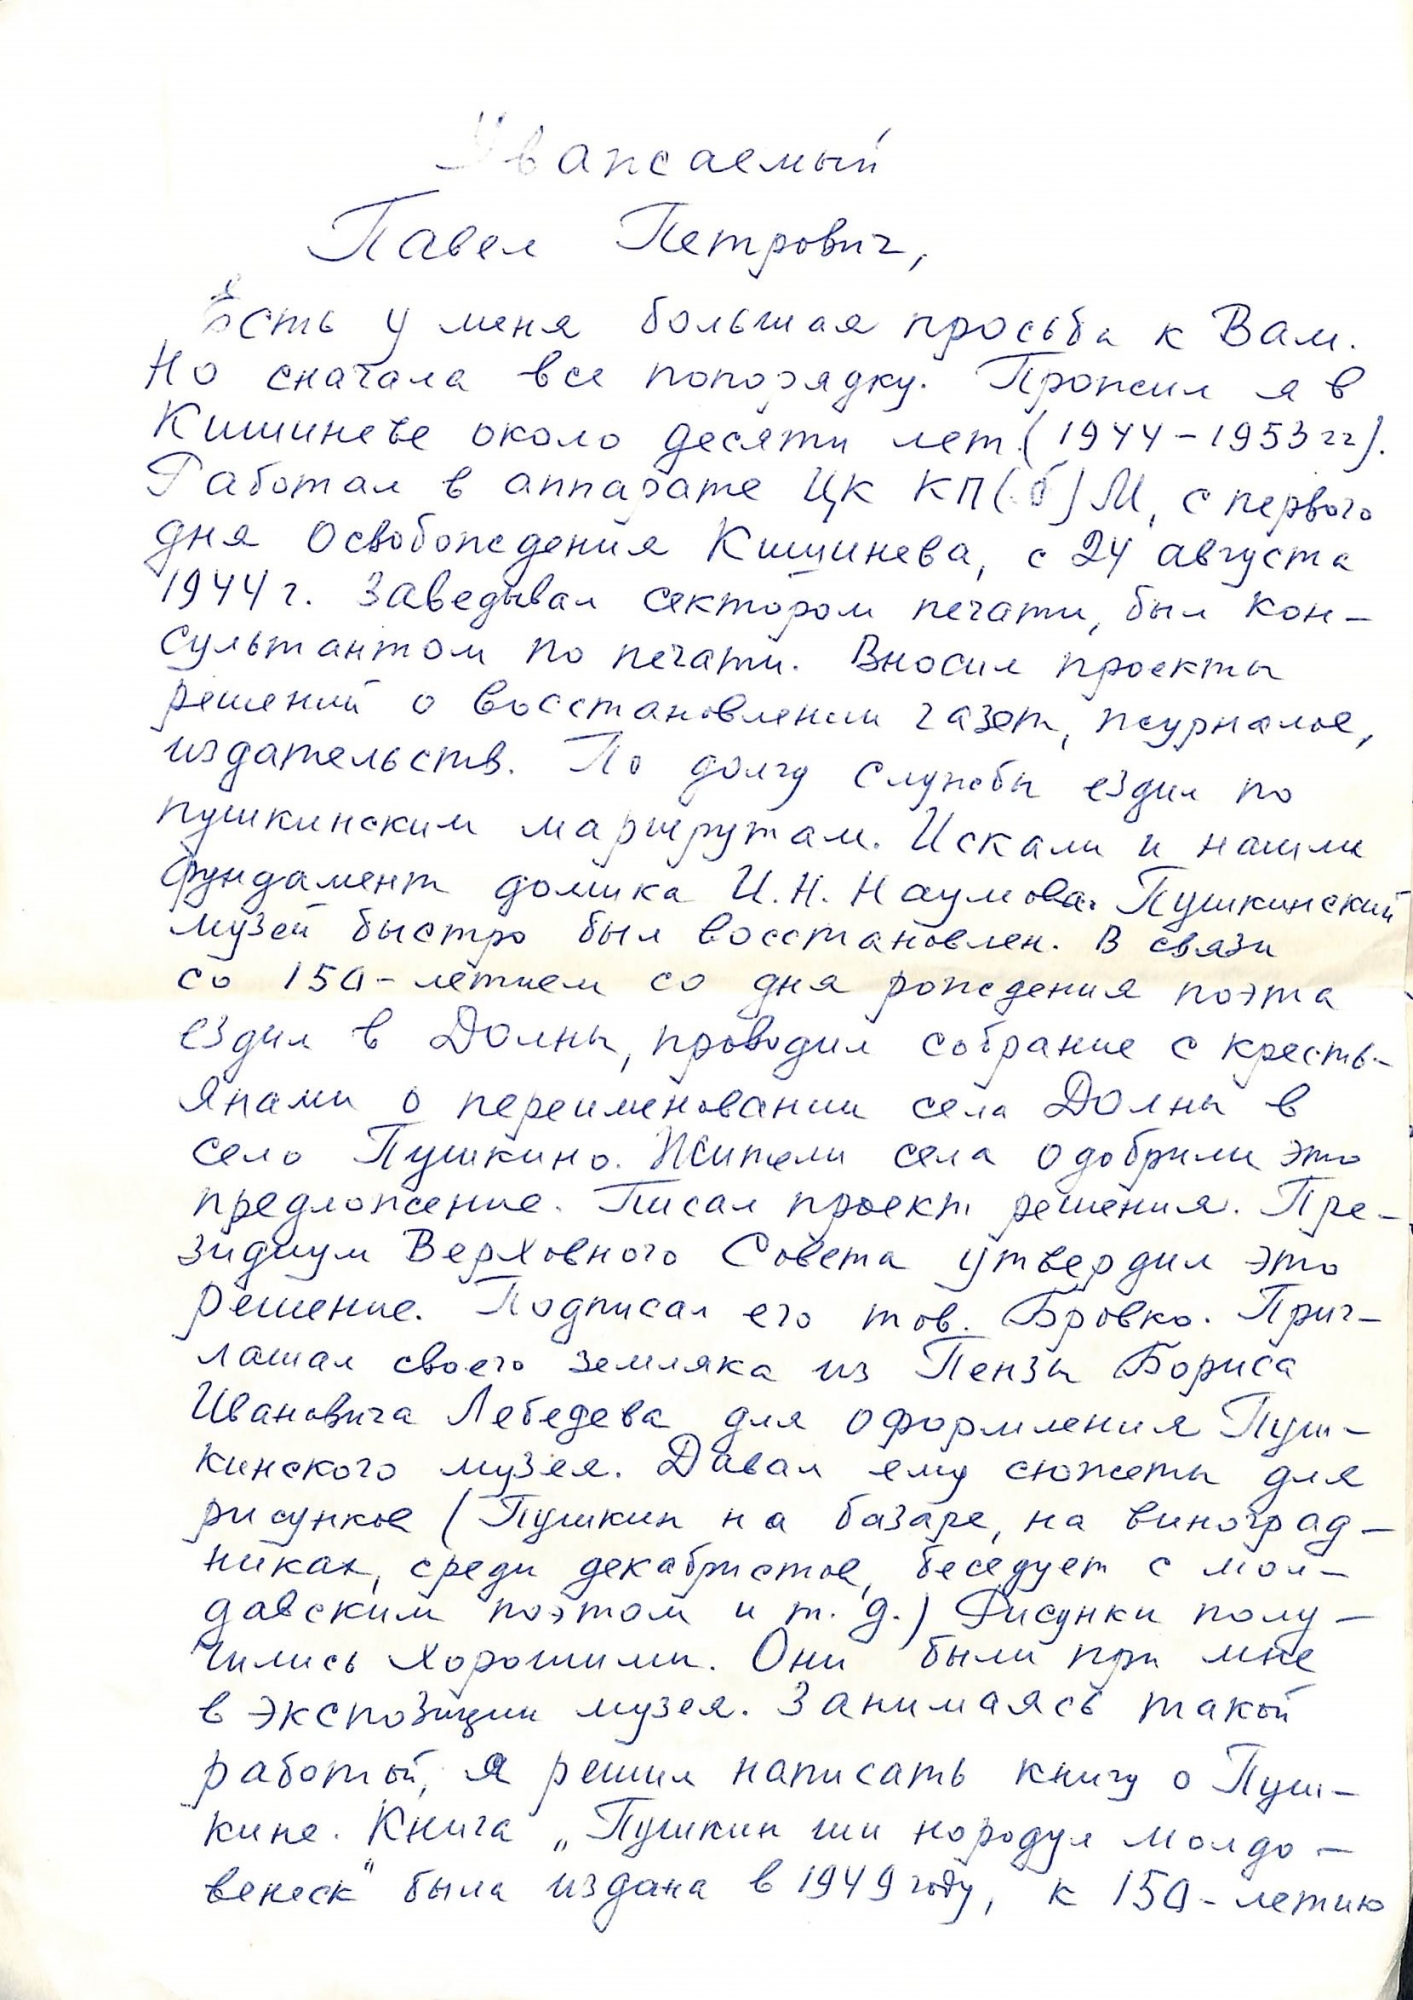 Уважаемый
Павел Петрович,
Есть у меня большая просьба к Вам.
Но сначала все попорядку. Прожил я в
Кишиневе около десяти лет (1944-1953 гг).
Работал в аппарате ЦК КП(б)М, с первого
дня освобождения Кишинева, с 24 августа
1944 г. Заведывал сектором печати, был кон-
сультантом по печати. Вносил проекты
решений о восстановлении газет, журналов,
издательств. По долгу службы ездил по
пушкинским маршрутам. Искали и нашли
фундамент домика И.Н. Наумова. Пушкинский
музей быстро был восстановлен. В связи
со 150-летием со дня рождения поэта
ездил в Долны, проводил собрание с кресть-
янами о переименовании села Долны в
село Пушкино. Жители села одобрили это
предложение. Писал проект решения. Пре-
зидиум Верховного Совета утвердил это
решение. Подписал его тов. Бровко. Приг-
лашал своего земляка из Пензы Бориса
Ивановича Лебедева для оформления Пуш-
кинского музея. Давал ему сюжеты для
рисунков (Пушкин на базаре, на виноград-
никах, среди декабристов, беседует с мол-
давским поэтом и т. д.) Рисунки полу-
чились хорошими. Они были при мне
в экспозиции музея. Занимаясь такой
работой, я решил написать книгу о Пуш-
кине. Книга „Пушкин ши нородул молдо-
венеск" была издана в 1949 году, к 150-летию